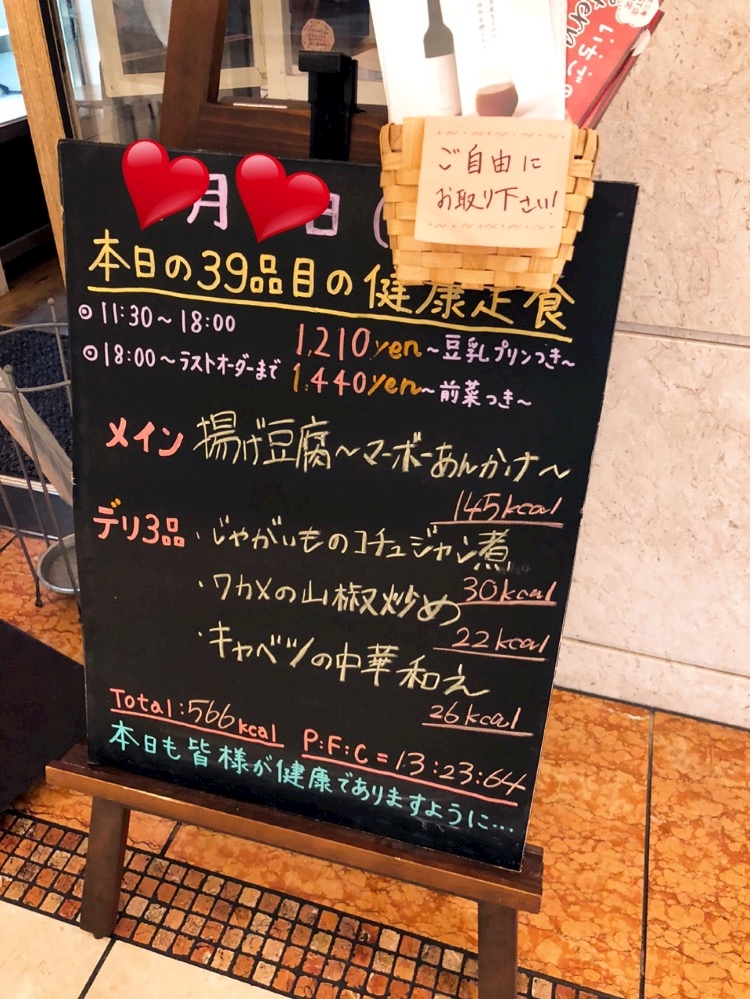 ご自由に
お取り下さい!
月 日 (
本日の39品目の健康定食
◎11:30~18:00 1,210yen~豆乳プリンつき~
◎18:00~ラストオーダーまで 1,440yen~前菜つき~
メイン 揚げ豆腐~マーボーあんかけ~
145kcal
デリ3品 ・じゃがいものコチュジャン煮
30kcal
・ワカメの山椒炒め
22kcal
・キャベツの中華和え
26kcal
Total:566kcal P:F:C=13:23:64
本日も皆様が健康でありますように…